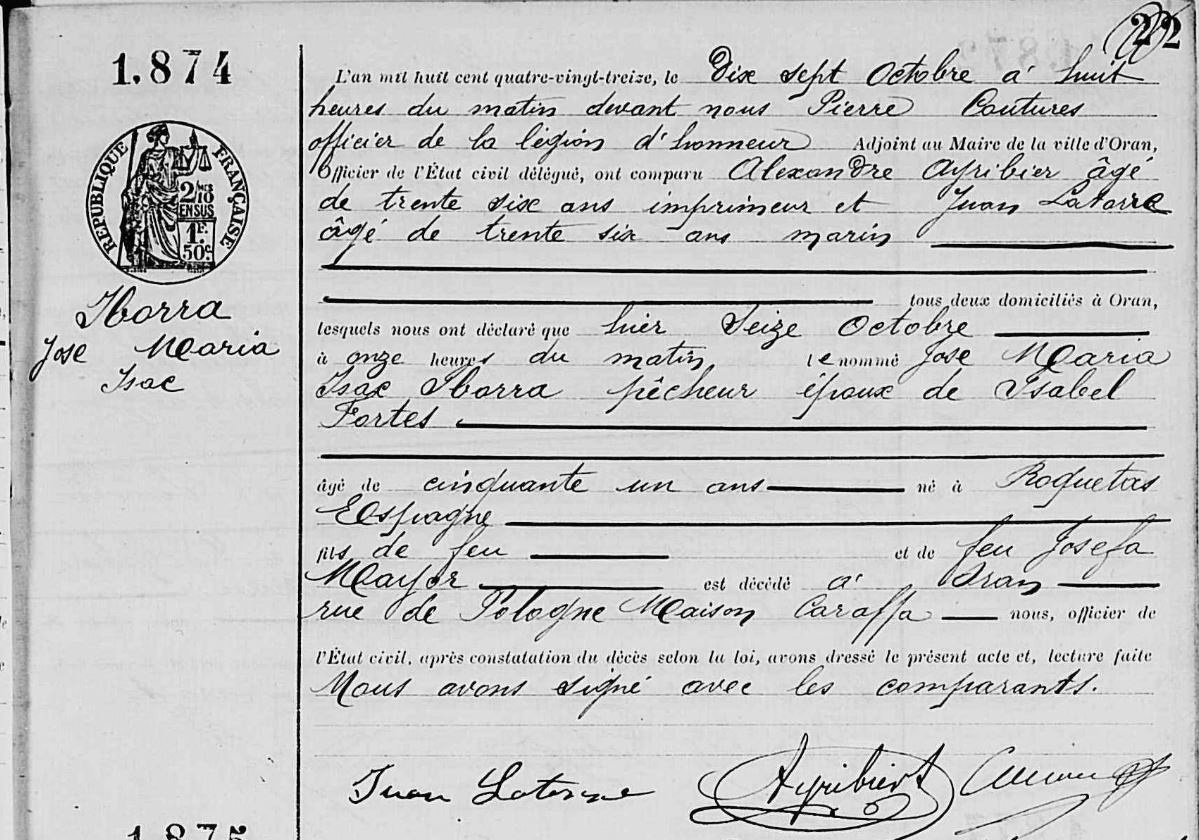 22
1.874
L'an mil huit cent quatre-vingt-treize, le Dix sept Octobre à huit
heures du matin devant nous Pierre Coutures
officier de la légion d'honneur Adjoint au Maire de la ville d'Oran,
Officier de l'État civil délégué, ont comparu Alexandre Ayribier âgé
de trente six ans imprimeur et Juan Latorre
âgé de trente six ans marin
tous deux domiciliés à Oran,
lesquels nous ont déclaré que hier Seize Octobre
à onze heures du matin le nommé Jose Maria
Isac Iborra pêcheur époux de Ysabel
Fortes
âgé de cinquante un ans né à Roquetas
Espagne
fils de feu et de feu Josefa
Mayor est décédé à Oran
rue de Pologne Maison Caraffa nous, officier de
l'État civil, après constatation du décès selon la loi, avons dressé le présent acte et, lecture faite
Nous avons signé avec les comparants.
RÉPUBLIQUE FRANÇAISE
2/10
EN SUS
1F.
50c.
Iborra
Jose Maria
Isac
Juan Latorre Ayribier
1.875